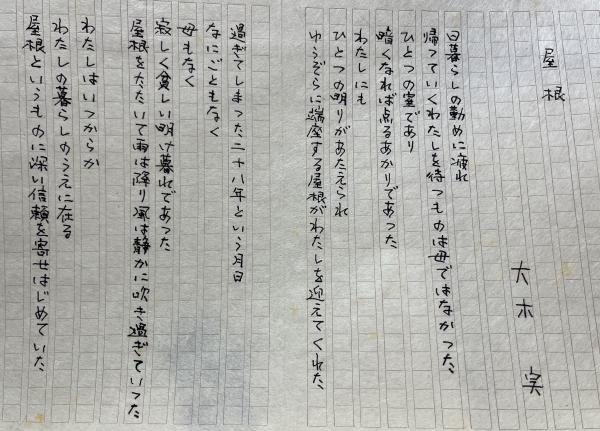 屋根
大木 実
日暮らしの勤めに疲れ
帰っていくわたしを待つものは母ではなかった、
ひとつの室であり
暗くなれば点るあかりであった、
わたしにも
ひとつの明りがあたえられ
ゆうぞらに端座する屋根がわたしを迎えてくれた、
過ぎてしまった二十八年という月日
なにごともなく
母もなく
寂しく貧しい明け暮れであった
屋根をたたいて雨は降り風は静かに吹き過ぎていった
わたしはいつからか
わたしの暮らしのうえに在る
屋根というものに深い信頼を寄せはじめていた